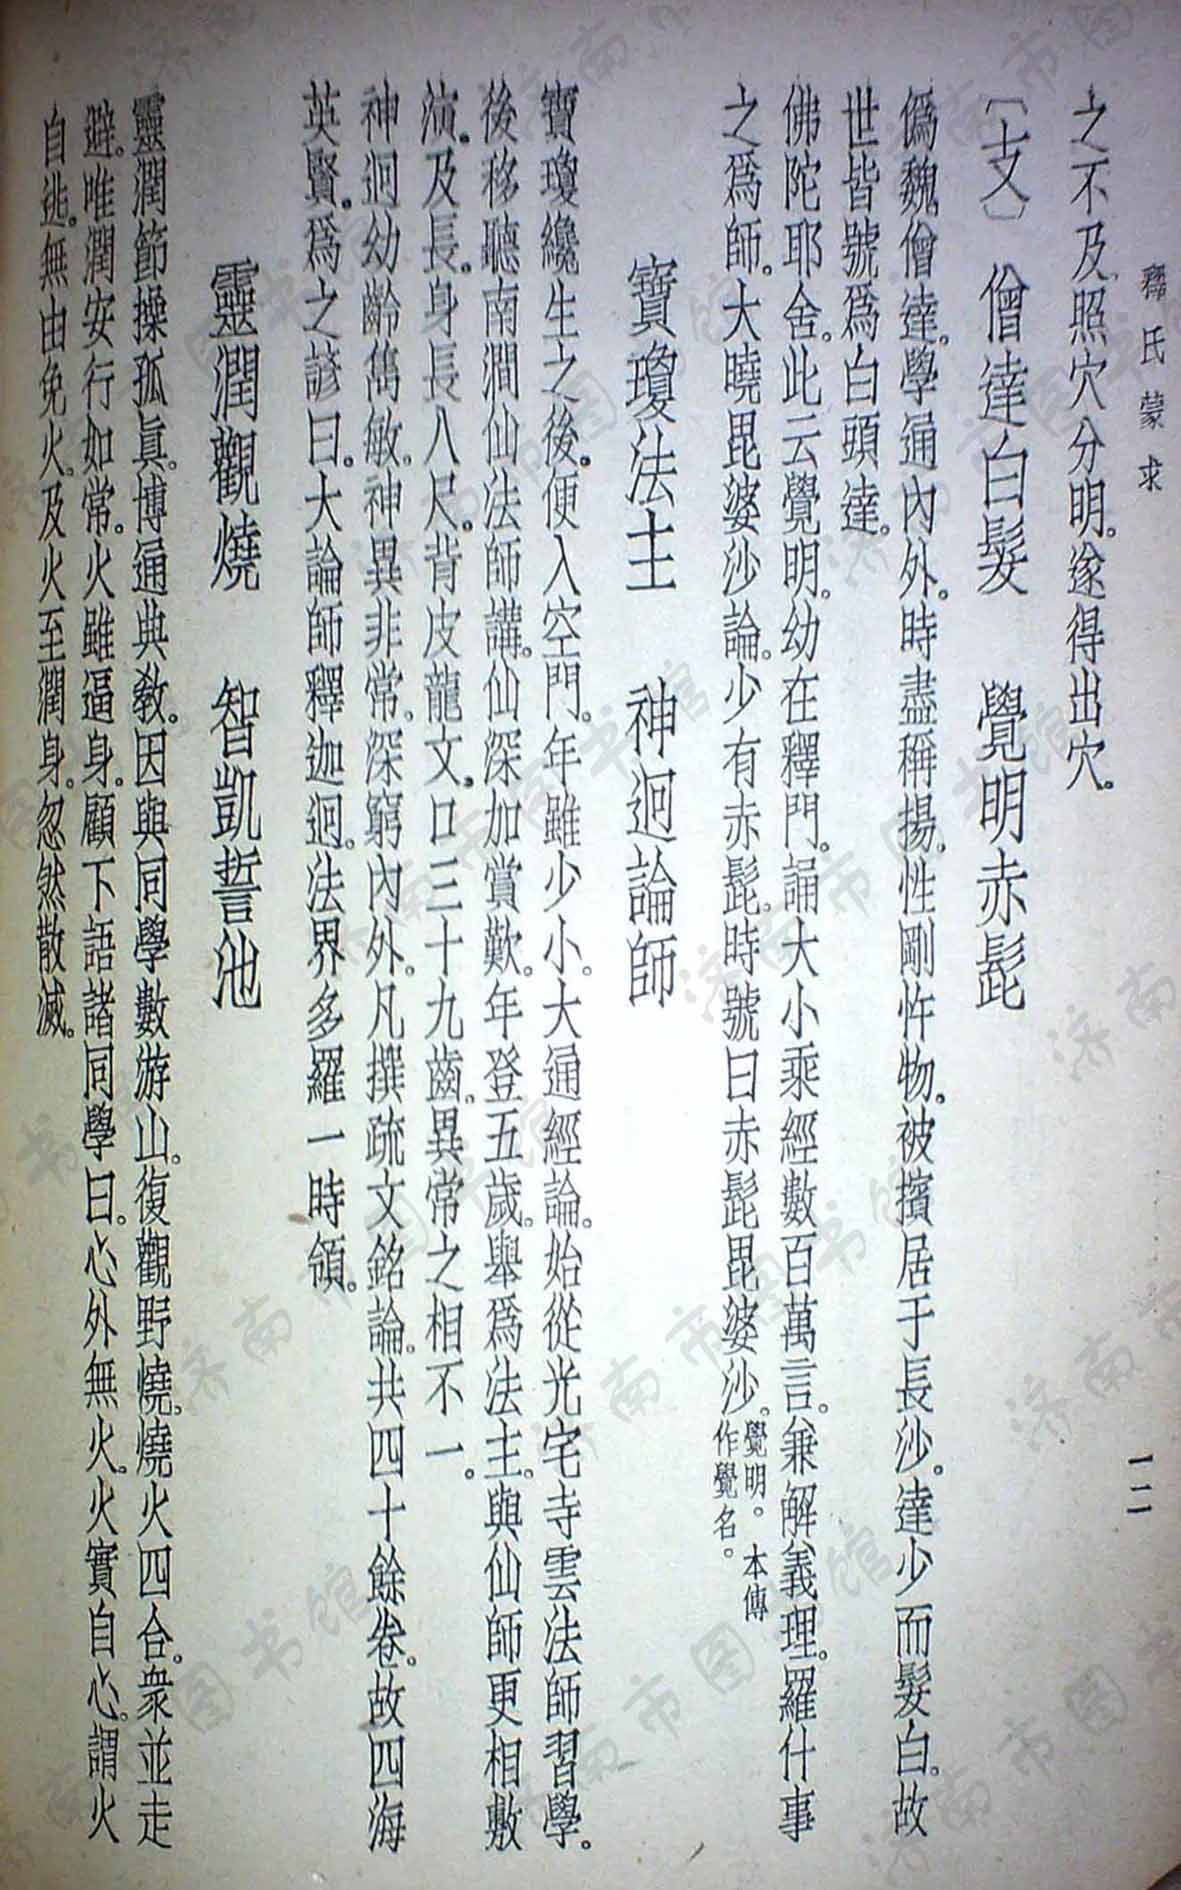 釋氏蒙求
一二
之不及照穴分明。遂得出穴。
〔七文〕 僧達白髮 覺明赤髭
偽魏僧達。學通內外。時盡稱揚。性剛忤物。被擯居于長沙。達少而髮白。故
世皆號為白頭達。
佛陀耶舍。此云覺明。幼在釋門。誦大小乘經數百萬言。兼解義理。羅什事
之為師。大曉毘婆沙論。少有赤髭。時號曰赤髭毘婆沙。覺明。本傳作覺名。
寶瓊法主 神迥論師
寶瓊纔生之後。便入空門。年雖少小。大通經論。始從光宅寺雲法師習學。
後移聽南澗仙法師講。仙深加賞歎。年登五歲。舉為法主。與仙師更相敷
演。及長。身長八尺。背皮龍文。口三十九齒。異常之相不一。
神迥幼齡雋敏。神異非常。深窮內外。凡撰疏文銘論。共四十餘卷。故四海
英賢。為之諺曰。大論師釋迦迥。法界多羅一時領。
靈潤觀燒 智凱誓池
靈潤節操孤真。博通典教。因與同學數游山。復觀野燒。燒火四合。眾並走
避。唯潤安行如常。火雖逼身。顧下語諸同學曰。心外無火。火實自心。謂火
自逃。無由免火。及火至潤身。忽然散滅。